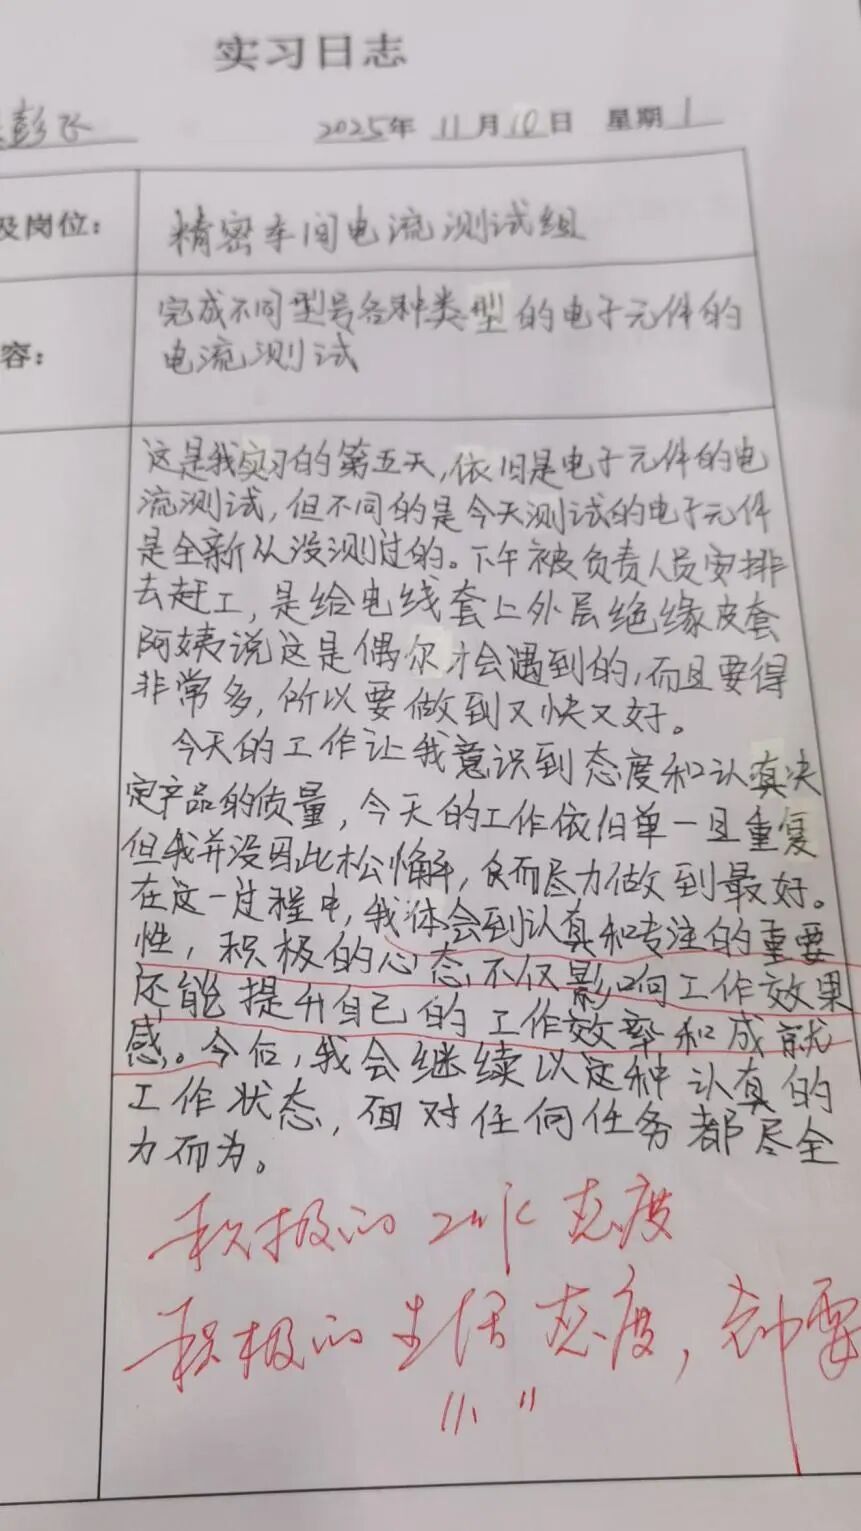 实习日志
彭飞 2025年 11月10日 星期1
及岗位: 精密车间电流测试组
容: 完成不同型号各种类型的电子元件的
电流测试
这是我实习的第五天,依旧是电子元件的电
流测试,但不同的是今天测试的电子元件
是全新从没测过的。下午被负责人员安排
去赶工,是给电线套上外层绝缘皮套
阿姨说这是偶尔才会遇到的,而且要得
非常多,所以要做到又快又好。
今天的工作让我意识到态度和认真决
定产品的质量,今天的工作依旧单一且重复
但我并没因此松懈,反而尽力做到最好。
在这一过程中,我体会到认真和专注的重要
性,积极的心态不仅影响工作效果
还能提升自己的工作效率和成就
感。今后,我会继续以这种认真的
工作状态,面对任何任务都尽全
力而为。
积极的工作态度
积极的生活态度,都要